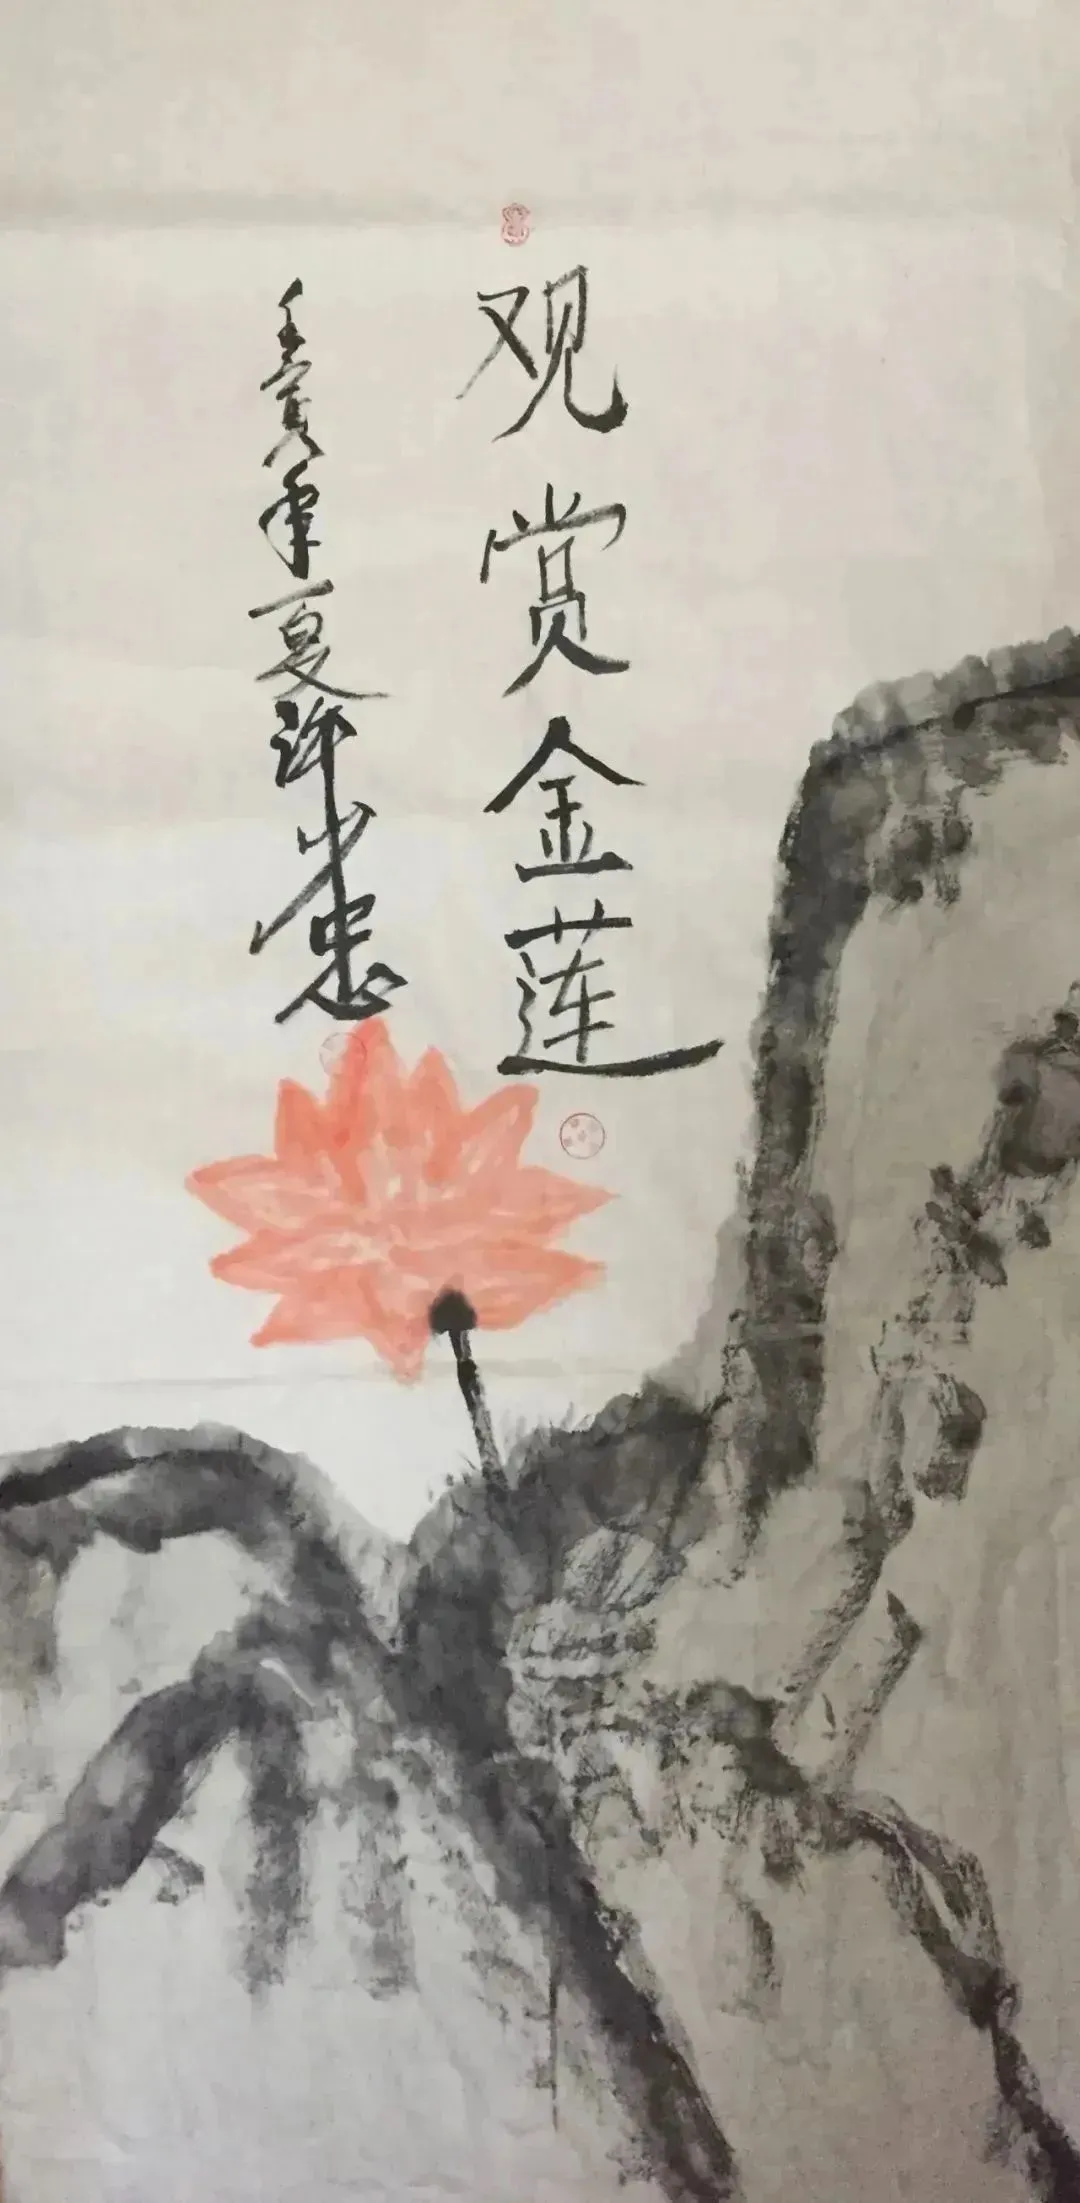 观赏金莲
壬寅年夏许少忠